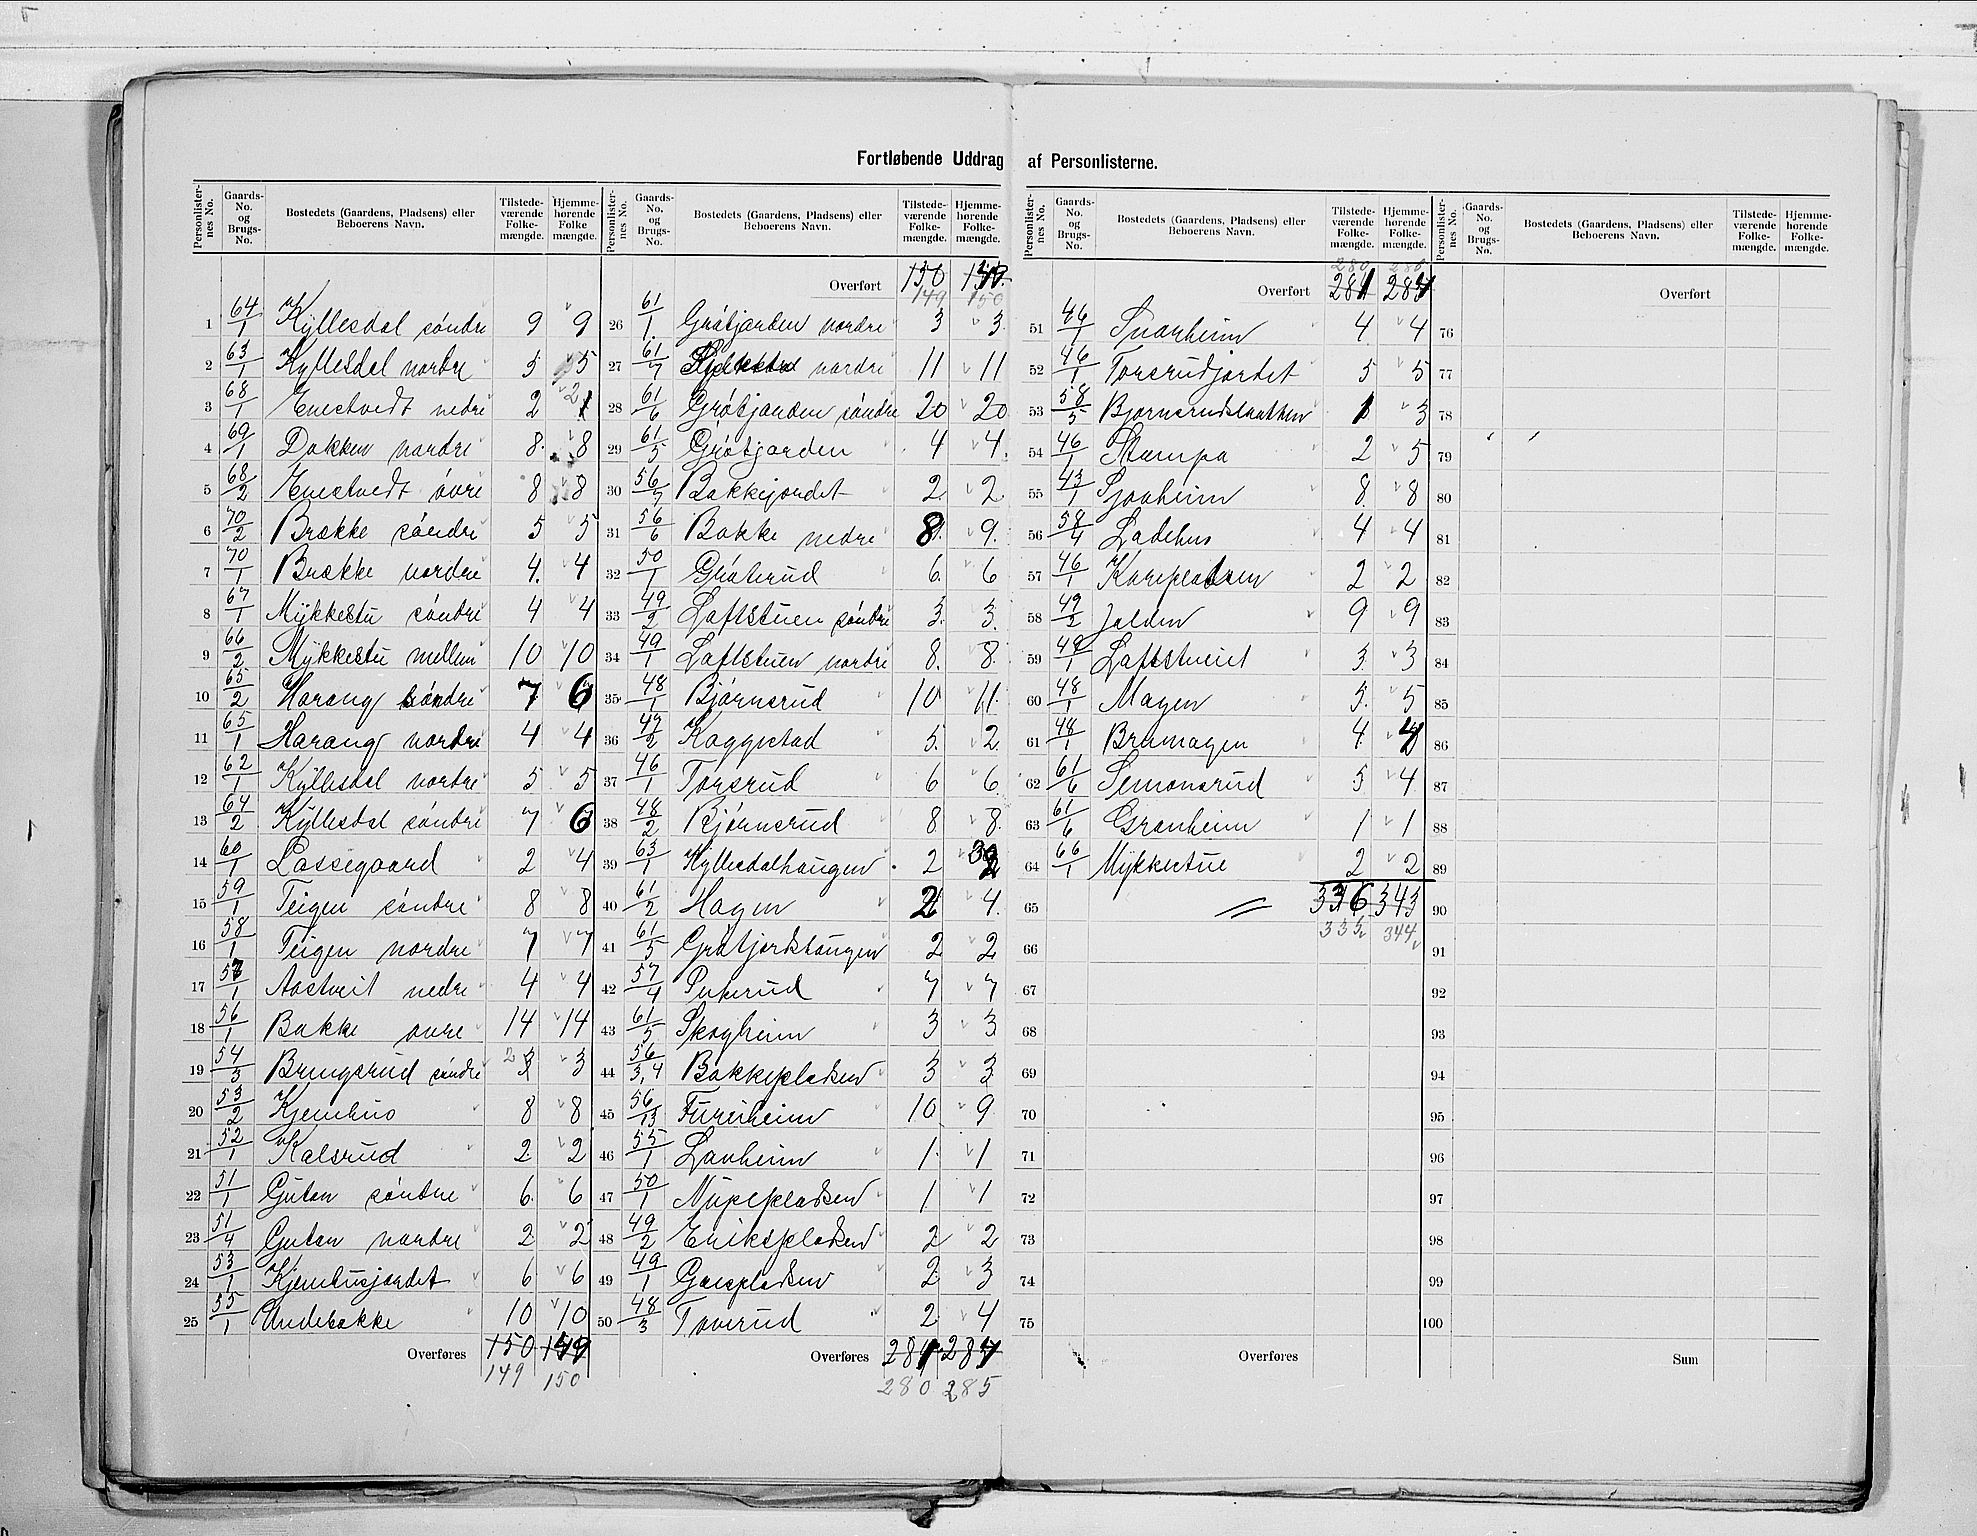 Fortløbende Uddrag af Personlisterne.
Personlisternes No. | Gaards-No. og Brugs-No. | Bostedets (Gaardens, Pladsens) eller Beboerens Navn. | Tilstedeværende Folkemængde. | Hjemmehørende Folkemængde.
1 64/1 Kyllesdal søndre 9 9
2 63/1 Kyllesdal nordre 5 5
3 68/1 Enestvedt nedre 2 2
4 69/1 Dokken nordre 8 8
5 68/2 Enestvedt øvre 8 8
6 70/2 Brække søndre 5 5
7 70/1 Brække nordre 4 4
8 67/1 Mykkestu søndre 4 4
9 66/2 Mykkestu mellem 10 10
10 65/2 Harang søndre 7 6
11 65/1 Harang nordre 4 4
12 62/1 Kyllesdal nordre 5 5
13 64/2 Kyllesdal søndre 7 6
14 60/1 Lassegaard 2 4
15 59/1 Teigen søndre 8 8
16 58/1 Teigen nordre 7 7
17 57/1 Aastveit nedre 4 4
18 56/1 Bakke øvre 14 14
19 54/3 Bringsrud søndre 2 3 3
20 53/2 Kjemhus 8 8
21 52/1 Kalsrud 2 2
22 51/1 Gutan søndre 6 6
23 51/4 Gutan nordre 2 2
24 53/1 Kjemhusjordet 6 6
25 55/1 Undebakke 10 10
Overføres 150 149
149 150
Personlisternes No. | Gaards-No. og Brugs-No. | Bostedets (Gaardens, Pladsens) eller Beboerens Navn. | Tilstedeværende Folkemængde. | Hjemmehørende Folkemængde.
Overført 150 149
149 150
26 61/1 Grøtjorden nordre 3 3
27 61/7 nordre 11 11
28 61/6 Grøtjorden søndre 20 20
29 61/5 Grøtjorden 4 4
30 56/7 Bakkejordet 2 2
31 56/6 Bakke nedre 8 9
32 50/1 Grøterud 6 6
33 49/2 Loftstuen søndre 3 3
34 49/1 Loftstuen nordre 8 8
35 48/1 Bjørnsrud 10 11
36 47/2 Koggestad 5 2
37 46/1 Torsrud 6 6
38 48/2 Bjørnsrud 8 8
39 63/1 Kyllesdalhaugen 2 2
40 61/2 Hagen 2 4
41 61/5 Grøtjordshaugen 2 2
42 57/4 Pukerud 7 7
43 61/5 Skogheim 3 3
44 56/3,4 Bakkepladsen 3 3
45 56/13 Furuheim 10 9
46 55/1 Lauheim 1 1
47 50/1 Nupepladsen 1 1
48 49/2 Erikspladsen 2 2
49 49/1 Gaaspladsen 2 3
50 48/3 Toverud 2 4
Overføres 281 284
280 285
Personlisternes No. | Gaards-No. og Brugs-No. | Bostedets (Gaardens, Pladsens) eller Beboerens Navn. | Tilstedeværende Folkemængde. | Hjemmehørende Folkemængde.
280 286
Overført 281 284
51 46/1 Snarheim 4 4
52 46/1 Torsrudjordet 5 5
53 58/5 Bjørnsrudslaatten 1 3
54 46/1 Stampa 2 5
55 43/1 Sjoaheim 8 8
56 58/4 Ladehus 4 4
57 46/1 Karepladsen 2 2
58 49/2 Jalden 9 9
59 49/1 Loftstueiet 3 3
60 48/1 Mogen 5 5
61 48/1 Brumogen 4 4
62 61/6 Simonsrud 5 4
63 61/6 Granheim 1 1
64 66/1 Mykkestue 2 2
65 336 343
335 344
66
67
68
69
70
71
72
73
74
75
Overføres
Personlisternes No. | Gaards-No. og Brugs-No. | Bostedets (Gaardens, Pladsens) eller Beboerens Navn. | Tilstedeværende Folkemængde. | Hjemmehørende Folkemængde.
Overført
76
77
78
79
80
81
82
83
84
85
86
87
88
89
90
91
92
93
94
95
96
97
98
99
100
Sum